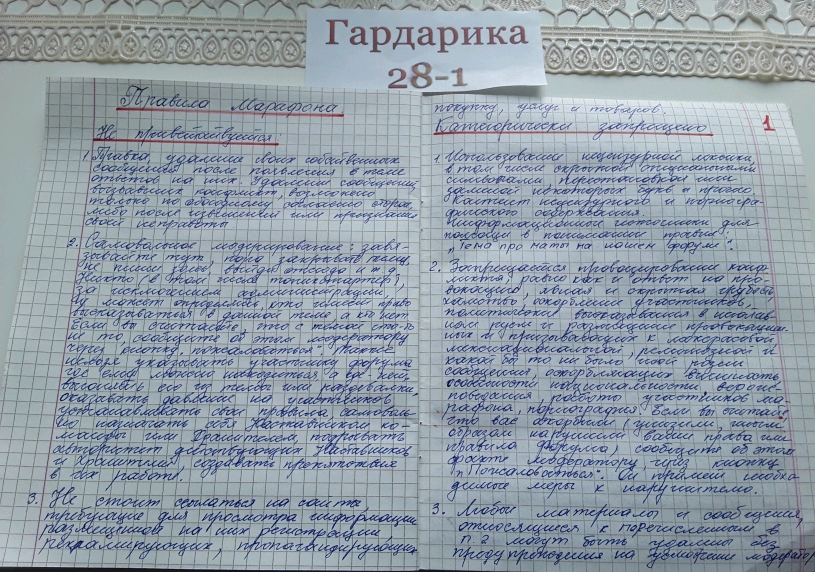 Гардарика
28-1
Правила Марафона
Не приветствуется:
1. Правка, удаление своих собственных
сообщений после появления в теме
ответов на них. Удаление сообщений,
вызвавших конфликт, возможно
только по обоюдному согласию сторон,
либо после извинения или признания
своей неправоты
2. Самовольное модерирование: завя-
зывайте тут, пора закрывать тему,
не пиши здесь, выйди отсюда и т.д.
Никто (в том числе топикстартер),
за исключением администрации,
не может определять, кто имеет право
высказываться в данной теме, а кто нет.
Если вы считаете, что с темой что-то
не то, сообщите об этом модератору
через кнопку "пожаловаться". Также
нельзя указывать участнику форума
где ему можно находиться, а где нет,
выгонять его из темы или раздевалки,
оказывать давление на участников,
устанавливать свои правила, самоволь-
но назначать себя Наставником ко-
манды или Хранителем, подрывать
авторитет действующих Наставников
и Хранителей, создавать препятствия
в их работе.
3. Не стоит ссылаться на сайты,
требующие для просмотра информации,
размещенной на них регистрации
рекламирующих, пропагандирующих
покупку, услуг и товаров.
Категорически запрещено
1
1. Использование нецензурной лексики,
в том числе скрытой специальными
символами, перестановкой или
заменой некоторых букв и прочего.
Контент нецензурного и порногра-
фического содержания.
Информационные источники для
помощи в понимании правил
"Тема про маты на нашем форуме".
2. Запрещается провоцирование конф-
ликта, равно как и ответ на про-
вокацию, явная и скрытая грубость,
хамство, оскорбление участников,
политические высказывания в
и размещение провокацион-
ных и призывающих к межрасовой,
межнациональной, религиозной и
какой бы то ни было иной розни
сообщений, оскорбляющих внешность,
особенности национальности, вероис-
поведания, работы участников ма-
рафона, порнография. Если вы считаете,
что вас оскорбили (унизили, иным
образом нарушили ваши права или
правила Форума) сообщите об этом
факте модератору через кнопку
"Пожаловаться". Он примет необхо-
димые меры к нарушителю.
3. Любой материалы и сообщения,
относящиеся к перечисленным в
п 2 могут быть удалены без
предупреждения на усмотрение модератор